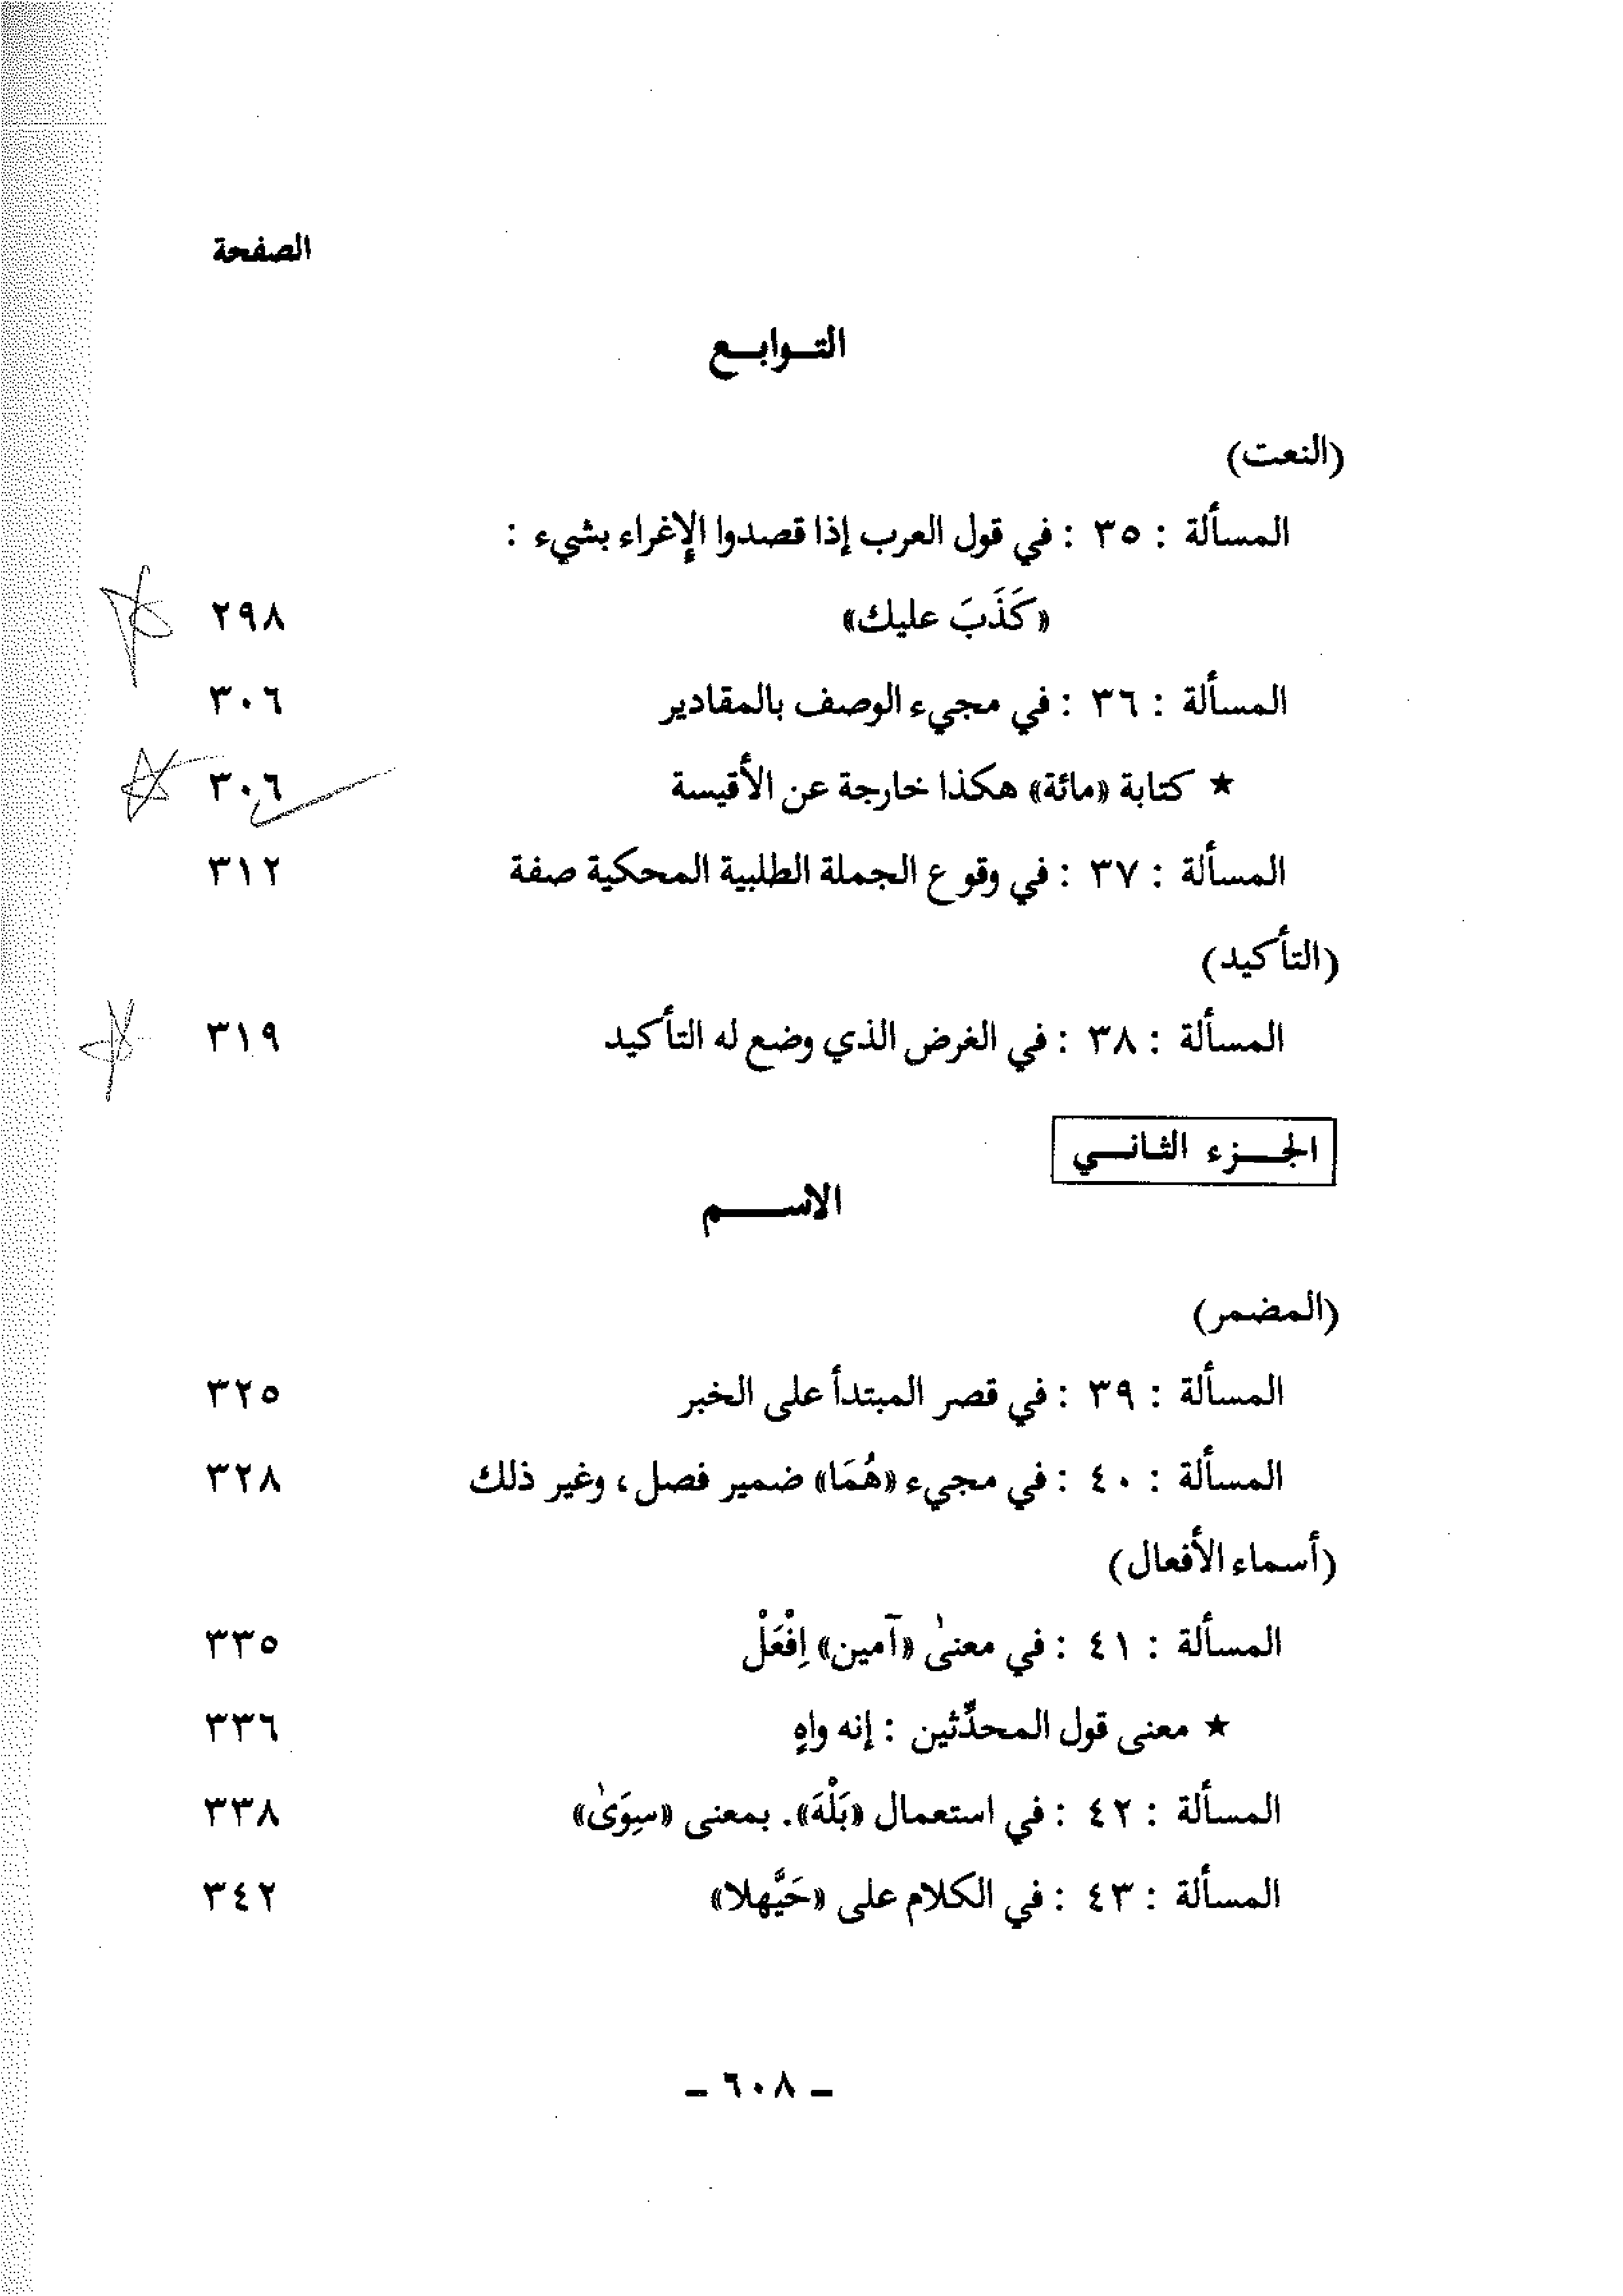 الصفحة
التـوابـع
(النعت)
المسألة : ٣٥ : في قول العرب إذا قصدوا الإغراء بشيء :
«كَذَبَ عليك» ٢٩٨
المسألة : ٣٦ : في مجيء الوصف بالمقادير ٣٠٦
★ كتابة «مائة» هكذا خارجة عن الأقيسة ٣٠٦
المسألة : ٣٧ : في وقوع الجملة الطلبية المحكية صفة ٣١٢
(التأكيد)
المسألة : ٣٨ : في الغرض الذي وضع له التأكيد ٣١٩
الجـزء الثانـي
الاسـم
(المضمر)
المسألة : ٣٩ : في قصر المبتدأ على الخبر ٣٢٥
المسألة : ٤٠ : في مجيء «هُمَا» ضمير فصل، وغير ذلك ٣٢٨
(أسماء الأفعال)
المسألة : ٤١ : في معنىٰ «آمين» اِفْعَلْ ٣٣٥
★ معنى قول المحدِّثين : إنه واهٍ ٣٣٦
المسألة : ٤٢ : في استعمال «بَلْهَ». بمعنى «سِوَىٰ» ٣٣٨
المسألة : ٤٣ : في الكلام على «حَيَّهلا» ٣٤٢
– ٦٠٨ –